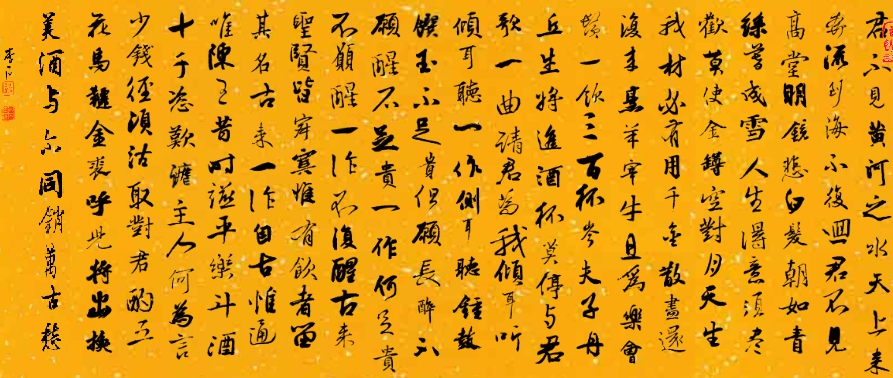 君不見黃河之水天上来
奔流到海不復迴君不見
高堂明鏡悲白髮朝如青
絲暮成雪人生得意須尽
歡莫使金罇空對月天生
我材必有用千金散盡還
復来烹羊宰牛且為樂會
須一飲三百杯岑夫子丹
丘生將進酒杯莫停与君
歌一曲請君為我傾耳听
傾耳聽一作側耳聽鍾鼓
饌玉不足貴但願長醉不
願醒不足貴一作何足貴
不願醒一作不復醒古来
聖賢皆寂寞惟有飲者留
其名古来一作自古惟通
唯陳王昔时讌平樂斗酒
十千恣歡謔主人何為言
少錢徑須沽取對君酌五
花馬韆金裘呼兒將出換
美酒与尔同銷萬古愁